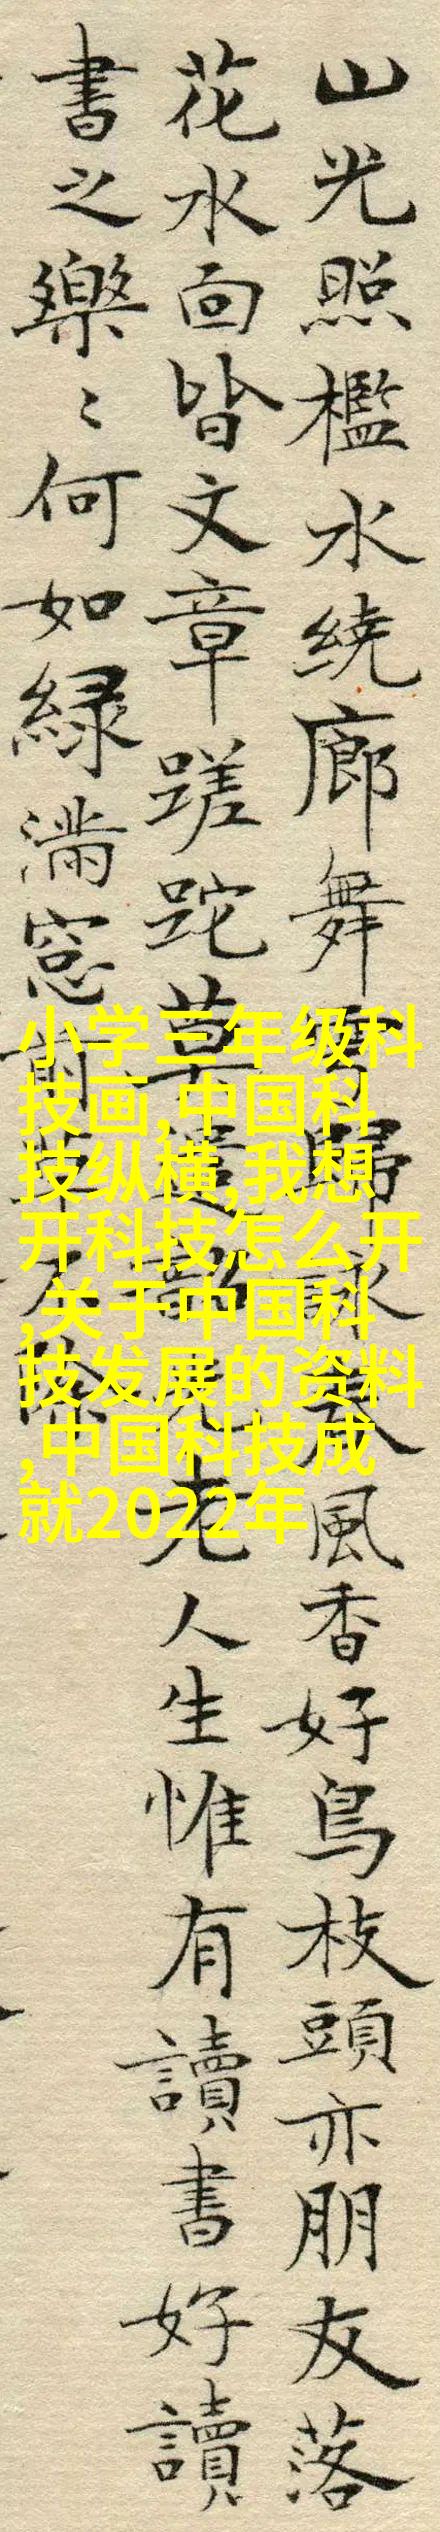 山光照檻水繞廊舞雩歸詠春風香好鳥枝頭亦朋友落
花水面皆文章蹉跎莫遣韶光老人生惟有讀書好讀
書之樂〻何如綠滿窓前草不除
小学三年级科
技画,中国科
技纵横,我想
开科技怎么开
,关于中国科
技发展的资料
,中国科技成
就2022年